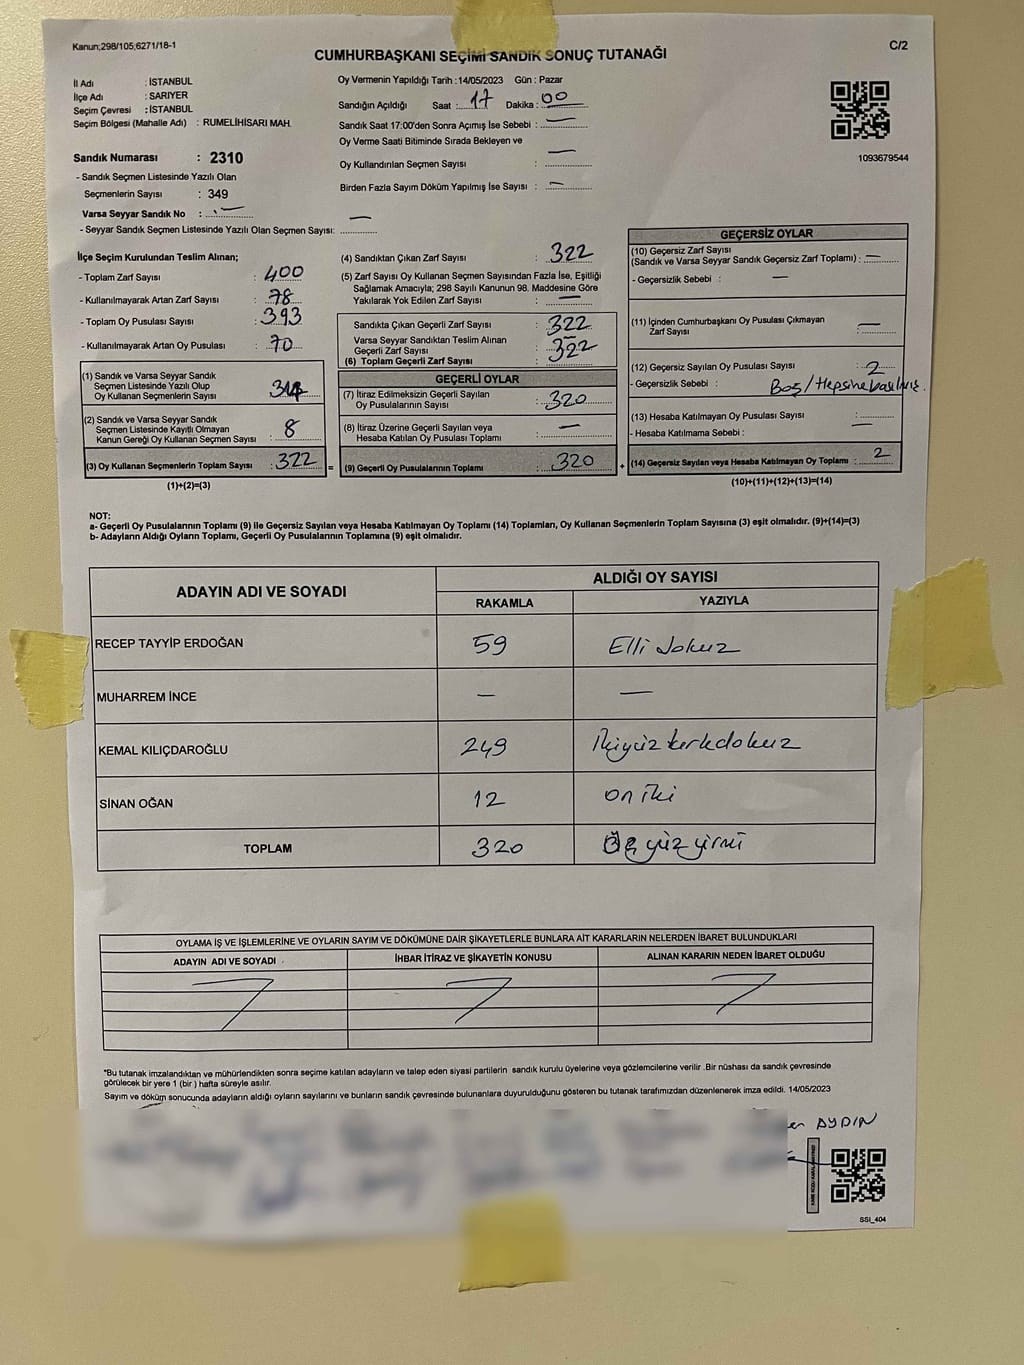 Kanun;298/105;6271/18-1
C/2
CUMHURBAŞKANI SEÇİMİ SANDIK SONUÇ TUTANAĞI
İl Adı : İSTANBUL
İlçe Adı : SARIYER
Seçim Çevresi : İSTANBUL
Seçim Bölgesi (Mahalle Adı) : RUMELİHİSARI MAH.
Sandık Numarası : 2310
- Sandık Seçmen Listesinde Yazılı Olan
Seçmenlerin Sayısı : 349
Varsa Seyyar Sandık No : —
- Seyyar Sandık Seçmen Listesinde Yazılı Olan Seçmen Sayısı: —
Oy Vermenin Yapıldığı Tarih : 14/05/2023 Gün : Pazar
Sandığın Açıldığı Saat : 17 Dakika : 00
Sandık Saat 17:00'den Sonra Açımış İse Sebebi : —
Oy Verme Saati Bitiminde Sırada Bekleyen ve
Oy Kullandırılan Seçmen Sayısı : —
Birden Fazla Sayım Döküm Yapılmış İse Sayısı : —
1093679544
İlçe Seçim Kurulundan Teslim Alınan;
- Toplam Zarf Sayısı : 400
- Kullanılmayarak Artan Zarf Sayısı : 78
- Toplam Oy Pusulası Sayısı : 393
- Kullanılmayarak Artan Oy Pusulası : 70
(1) Sandık ve Varsa Seyyar Sandık
Seçmen Listesinde Yazılı Olup
Oy Kullanan Seçmenlerin Sayısı :
(2) Sandık ve Varsa Seyyar Sandık
Seçmen Listesinde Kayıtlı Olmayan
Kanun Gereği Oy Kullanan Seçmen Sayısı : 8
(3) Oy Kullanan Seçmenlerin Toplam Sayısı : 322
(1)+(2)=(3)
(4) Sandıktan Çıkan Zarf Sayısı : 322
(5) Zarf Sayısı Oy Kullanan Seçmen Sayısından Fazla İse, Eşitliği
Sağlamak Amacıyla; 298 Sayılı Kanunun 98. Maddesine Göre
Yakılarak Yok Edilen Zarf Sayısı : —
Sandıkta Çıkan Geçerli Zarf Sayısı : 322
Varsa Seyyar Sandıktan Teslim Alınan
Geçerli Zarf Sayısı :
(6) Toplam Geçerli Zarf Sayısı : 322
GEÇERLİ OYLAR
(7) İtiraz Edilmeksizin Geçerli Sayılan
Oy Pusulalarının Sayısı : 320
(8) İtiraz Üzerine Geçerli Sayılan veya
Hesaba Katılan Oy Pusulası Toplamı : —
= (9) Geçerli Oy Pusulalarının Toplamı : 320 +
GEÇERSİZ OYLAR
(10) Geçersiz Zarf Sayısı
(Sandık ve Varsa Seyyar Sandık Geçersiz Zarf Toplamı) : —
- Geçersizlik Sebebi : —
(11) İçinden Cumhurbaşkanı Oy Pusulası Çıkmayan
Zarf Sayısı : —
(12) Geçersiz Sayılan Oy Pusulası Sayısı : 2
- Geçersizlik Sebebi : Boş/Hepsine basılmış.
(13) Hesaba Katılmayan Oy Pusulası Sayısı : —
- Hesaba Katılmama Sebebi :
(14) Geçersiz Sayılan veya Hesaba Katılmayan Oy Toplamı : 2
(10)+(11)+(12)+(13)=(14)
NOT:
a- Geçerli Oy Pusulalarının Toplamı (9) ile Geçersiz Sayılan veya Hesaba Katılmayan Oy Toplamı (14) Toplamları, Oy Kullanan Seçmenlerin Toplam Sayısına (3) eşit olmalıdır. (9)+(14)=(3)
b- Adayların Aldığı Oyların Toplamı, Geçerli Oy Pusulalarının Toplamına (9) eşit olmalıdır.
ADAYIN ADI VE SOYADI
ALDIĞI OY SAYISI
RAKAMLA YAZIYLA
RECEP TAYYİP ERDOĞAN 59 Elli dokuz
MUHARREM İNCE — —
KEMAL KILIÇDAROĞLU 249 İkiyüz kırkdokuz
SİNAN OĞAN 12 on iki
TOPLAM 320 Üç yüz yirmi
OYLAMA İŞ VE İŞLEMLERİNE VE OYLARIN SAYIM VE DÖKÜMÜNE DAİR ŞİKAYETLERLE BUNLARA AİT KARARLARIN NELERDEN İBARET BULUNDUKLARI
ADAYIN ADI VE SOYADI İHBAR İTİRAZ VE ŞİKAYETİN KONUSU ALINAN KARARIN NEDEN İBARET OLDUĞU
"Bu tutanak imzalandıktan ve mühürlendikten sonra seçime katılan adayların ve talep eden siyasi partilerin sandık kurulu üyelerine veya gözlemcilerine verilir .Bir nüshası da sandık çevresinde
görülecek bir yere 1 (bir ) hafta süreyle asılır.
Sayım ve döküm sonucunda adayların aldığı oyların sayılarını ve bunların sandık çevresinde bulunanlara duyurulduğunu gösteren bu tutanak tarafımızdan düzenlenerek imza edildi. 14/05/2023
AYDIN
SSI_404